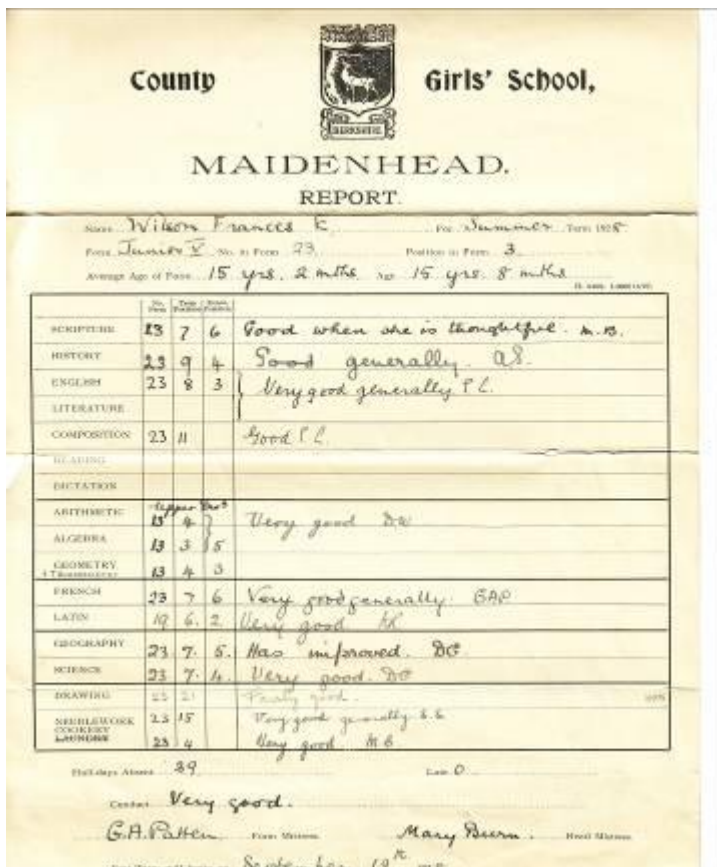 County Girls' School,
BERKSHIRE
MAIDENHEAD.
REPORT.
Name Wilson Frances E. For Summer Term 1928
Form Junior V No. in Form 23 Position in Form 3
Average Age of Form 15 yrs. 2 mths. Age 15 yrs. 8 mths
No. Form Term Position Exam. Position
SCRIPTURE 23 7 6 Good when she is thoughtful. M.B.
HISTORY 23 9 4 Good generally. A.S.
ENGLISH 23 8 3 Very good generally P.L.
LITERATURE
COMPOSITION 23 11 Good P.L.
READING
DICTATION
Upper Div
ARITHMETIC 13 4 Very good DW
ALGEBRA 13 3 5
GEOMETRY 13 4 3
FRENCH 23 7 6 Very good generally. GAP
LATIN 19 6. 2 Very good KR
GEOGRAPHY 23 7. 5. Has improved. DG
SCIENCE 23 7. 4. Very good. DG
DRAWING 23 21 Fairly good.
NEEDLEWORK 23 15 Very good generally
COOKERY
LAUNDRY 23 4 Very good M.B.
Half-days Absent 39 Late 0
Conduct Very good.
G.A. Patten Form Mistress. Mary Head Mistress.
September 19th